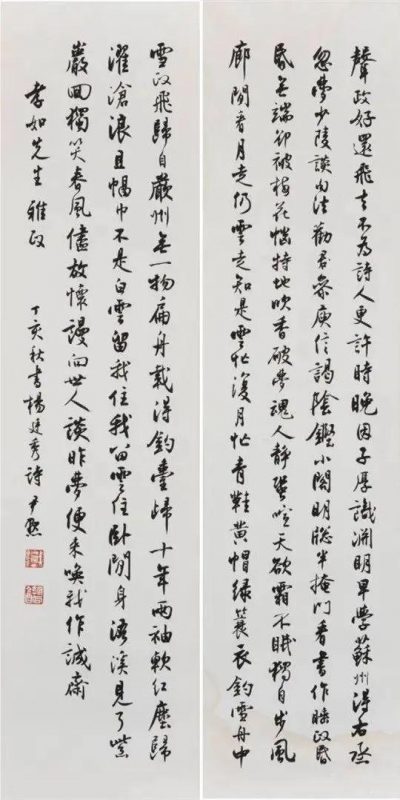 聲政好還飛去不為詩人更許時晚因子厚識淵明早學蘇州得右丞
忽夢少陵談句法勸參庾信謁陰鏗小閣明窗半掩門看書作睡政昏
昏無端卻被梅花惱特地吹香破夢魂人靜蛩喧天欲霜不眠獨自步風
廊閒看月走仍雲走知是雲忙復月忙青鞋黃帽綠蓑衣釣雪舟中
雪政飛歸自嚴州無一物扁舟載得釣臺歸十年兩袖軟紅塵歸
濯滄浪且幅巾不是白雲留我住我留雲住臥閒身浯溪見了紫
巖回獨笑春風儘放懷謾向世人談昨夢便來喚我作誠齋
孝如先生雅政
丁亥秋書楊廷秀詩 尹默